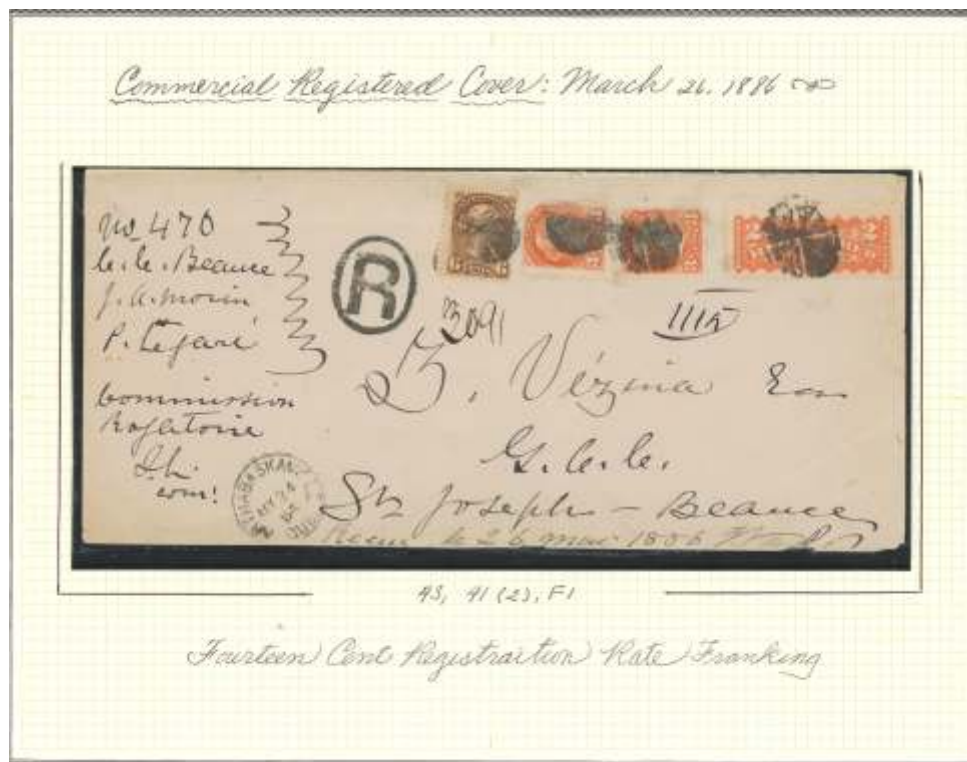 Commercial Registered Cover: March 26. 1886
No 470
C. C. Beauce
J. A. Morin
P. Légaré
Commission
Rogatoire
R
3091
Z. Vézina
G. C. C.
St Joseph - Beauce
Recu le 26 mar 1886
43, 41 (2), F1
Fourteen Cent Registraition Rate Franking